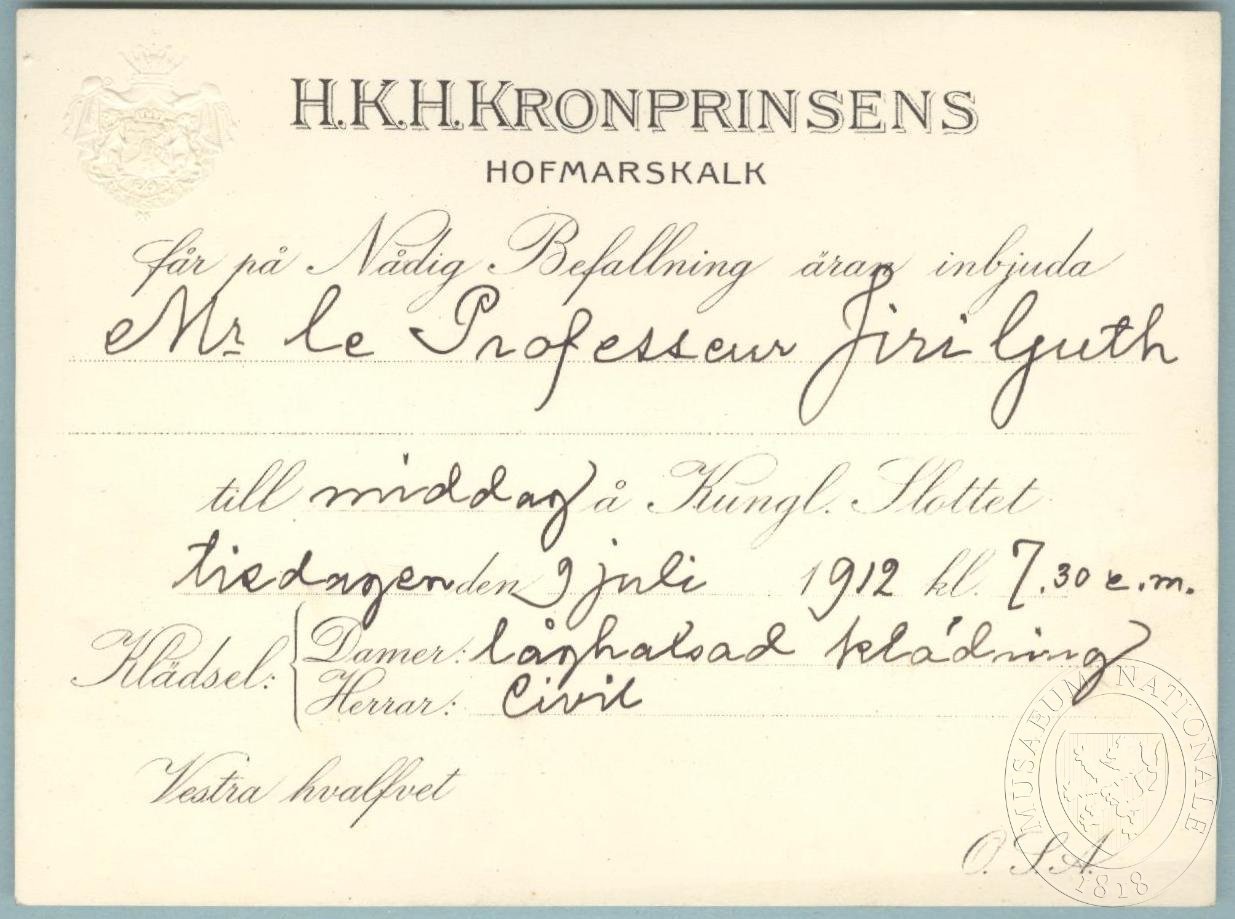 H.K.H. KRONPRINSENS
HOFMARSKALK
får på Nådig Befallning äran inbjuda
Mr le Professeur Jiri Guth
till middag å Kungl. Slottet
tisdagen den 9 juli 1912 kl. 7.30 e.m.
Klädsel: { Damer: låghalsad klädning
Herrar: Civil
Vestra hvalfvet
O.S.A.
MUSAEUM NATIONALE
1818